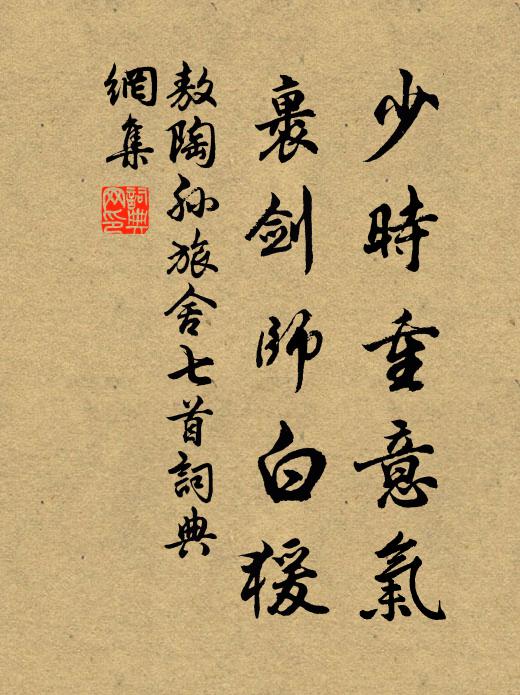 少時重意氣
裹剑師白猨
敖陶孙旅舍七首詞典
網集
詞典網印